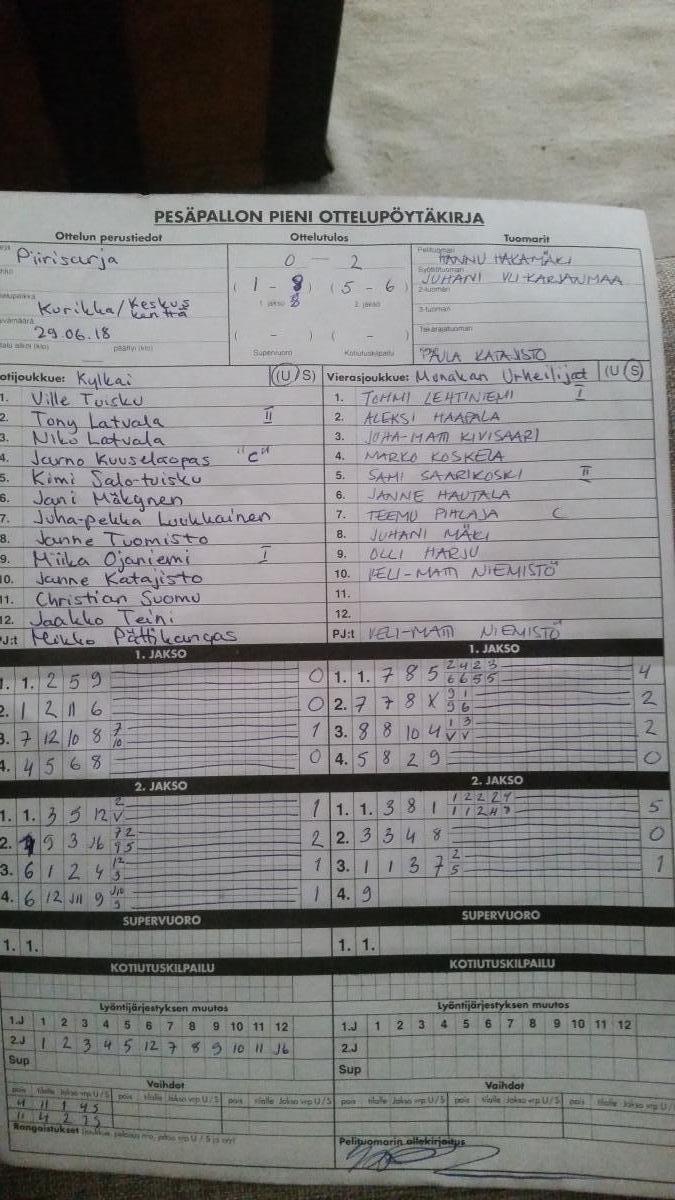 PESÄPALLON PIENI OTTELUPÖYTÄKIRJA
Ottelun perustiedot Ottelutulos Tuomarit
Piirisarja 0 - 2 Pelituomari HANNU HAKAMÄKI
(1 - 8) (5 - 6) Syöttötuomari JUHANI YLI-KARJANMAA
1. jakso 8 2. jakso 2-tuomari
Kurikka/Keskuskenttä 3-tuomari
29.06.18 ( - ) ( - ) Takarajatuomari
päättyi (klo) Supervuoro Kotiutuskilpailu PAULA KATAJISTO
otijoukkue: Kylkai (U/S) Vierasjoukkue: Monakan Urheilijat (U/S)
1. Ville Tuisku 1. TOMMI LEHTINIEMI I
2. Tony Latvala II 2. ALEKSI HAAPALA
3. Niko Latvala 3. JUHA-MATTI KIVISAARI
4. Jarno Kuuselaopas "C" 4. MARKO KOSKELA
5. Kimi Salo-tuisku 5. SAMI SAARIKOSKI II
6. Jani Mäkynen 6. JANNE HAUTALA
7. Juha-pekka Luukkainen 7. TEEMU PIHLAJA C
8. Janne Tuomisto 8. JUHANI MÄKI
9. Miika Ojaniemi I 9. OLLI HARJU
10. Janne Katajisto 10. VELI-MATTI NIEMISTÖ
11. Christian Suomu 11.
12. Jaakko Teini 12.
PJ:t Mikko Pättikangas PJ:t VELI-MATTI NIEMISTÖ
1. JAKSO 1. JAKSO
1. 1. 2 5 9 0 1. 1. 7 8 5 2 4 2 3 4
6 6 5 5
2. 1 2 11 6 0 2. 7 7 8 X 9 1 2
9 6
3. 7 12 10 8 7 1 3. 8 8 10 4 1 3 2
10 V V
4. 4 5 6 8 0 4. 5 8 2 9 0
2. JAKSO 2. JAKSO
1. 1. 3 5 12 2 1 1. 1. 3 8 1 1 2 2 2 4 5
V
2. 9 3 J6 7 2 2 2. 3 3 4 8 0
9 5
3. 6 1 2 4 12 1 3. 1 1 3 7 2 1
3 5
4. 6 12 J11 9 J10 1 4. 9
SUPERVUORO SUPERVUORO
1. 1. 1. 1.
KOTIUTUSKILPAILU KOTIUTUSKILPAILU
Lyöntijärjestyksen muutos Lyöntijärjestyksen muutos
1.J 1 2 3 4 5 6 7 8 9 10 11 12 1.J 1 2 3 4 5 6 7 8 9 10 11 12
2.J 1 2 3 4 5 12 7 8 9 10 11 J6 2.J
Sup Sup
Vaihdot Vaihdot
pois tilalle Jakso vrp U/S pois tilalle Jakso vrp U/S pois tilalle Jakso vrp U/S pois tilalle Jakso vrp U/S pois tilalle Jakso vrp U/S pois tilalle Jakso vrp U/
4 11 1 4S
11 4 2
Rangaistukset Pelituomarin allekirjoitus